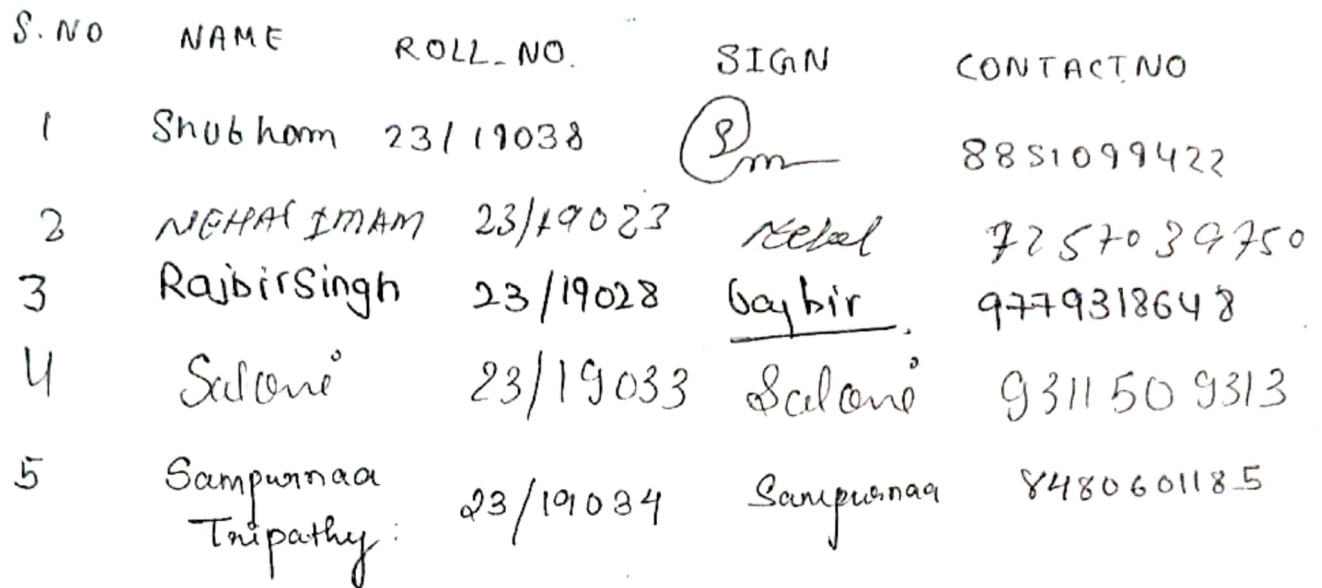 S. NO NAME ROLL_NO. SIGN CONTACT NO
1 Shubham 23/19038 8851099422
2 NEHAL IMAM 23/19023 Nehal 7257039750
3 Rajbir Singh 23/19028 Rajbir 9779318648
4 Saloni 23/19033 Saloni 9311509313
5 Sampurnaa 23/19034 Sampurnaa 8480601185
Tripathy